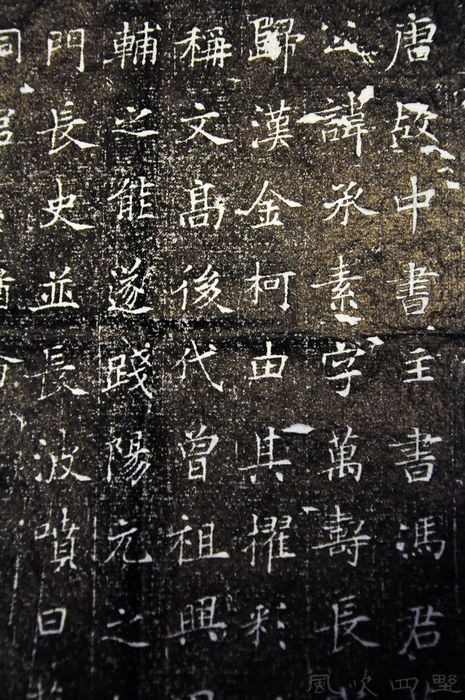 唐故中書主書馮君
公諱承素字萬壽長
歸漢金柯由其擢彩
稱文高後代曾祖興
輔之能遂踐陽元之
門長史並長波噴日
同
風吹四野